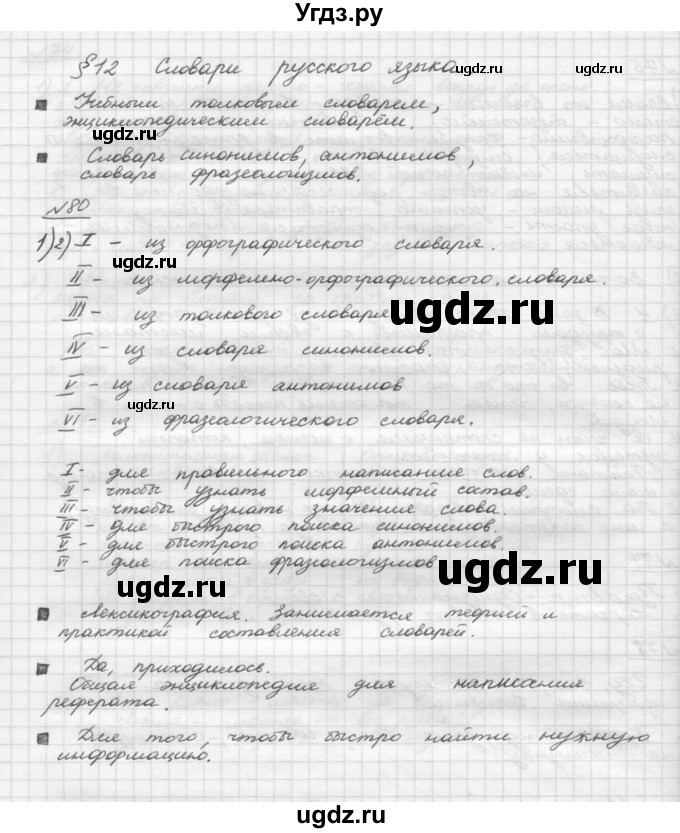 Угдз.ру
§12 Словари русского языка
ugdz.ru
Учебным толковым словарем,
ugdz.ru
энциклопедическим словарём.
Словарь синонимов, антонимов,
словарь фразеологизмов.
ugdz.ru
№80
1) 2) I - из орфографического словаря.
ugdz.ru
II - из морфемно-орфографического словаря.
III - из толкового словаря
ugdz.ru
IV - из словаря синонимов.
V - из словаря антонимов
ugdz.ru
VI - из фразеологического словаря.
I - для правильного написание слов.
II - чтобы узнать морфемный состав.
ugdz.ru
III - чтобы узнать значения слова.
IV - для быстрого поиска синонимов.
V - для быстрого поиска антонимов.
VI - для поиска фразеологизмов
ugdz.ru
ugdz.ru
Лексикография. Занимается теорией и
практикой составления словарей.
ugdz.ru
Да, приходилось.
Общая энциклопедия для написания
реферата.
ugdz.ru
Для того, чтобы быстро найти нужную
информацию.
ugdz.ru
ugdz.ru